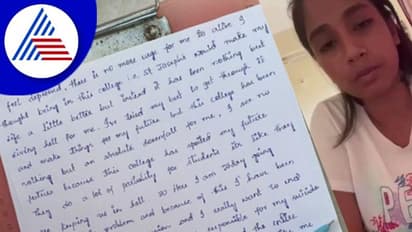 feel depressed, there is no more urge for me to alive. I
thought being in this college i.e, st Joseph's would make my
life a little better but instead it has been nothing but
living hell for me. I've tried my best to get through it
and make things for my future but this college has been
nothing but an absolute downfall for me, I am no
because this college has spoiled my future
they do a lot of partiality for students it's like they
are keeping us in hell. So Here I am today going
problem and because of this I have been
and I really want to end
responsible for my suicide
and the entire
me